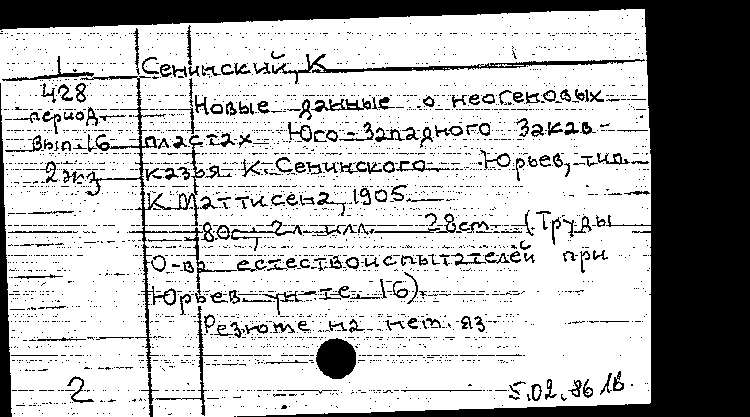 1
428
период.
вып.16
2экз
Сенинский, К
Новые данные о неогеновых
пластах Юго-Западного Закав-
казья К. Сенинского. Юрьев, тип.
К. Маттисена, 1905.
80с., 2л илл. 28см. (Труды
О-ва естествоиспытателей при
Юрьев. ун-те. 16).
Резюме на нем. яз
2
5.02.86